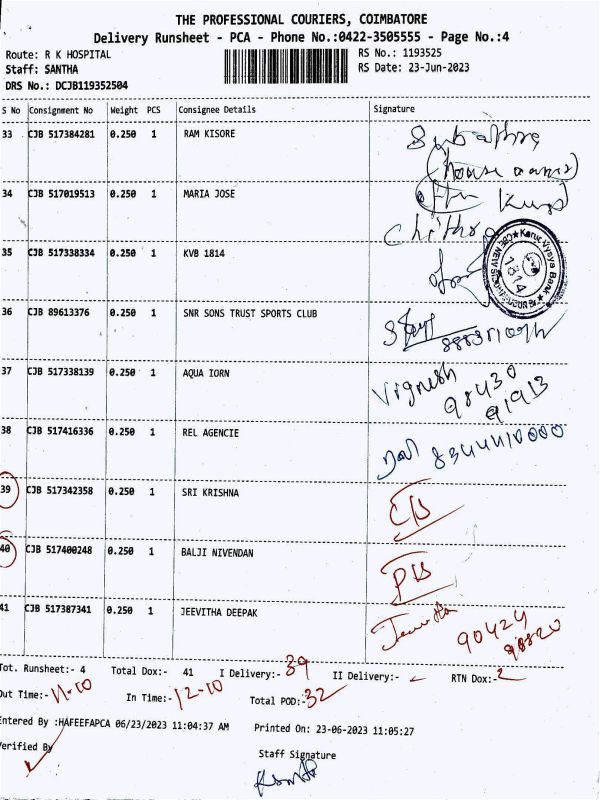 THE PROFESSIONAL COURIERS, COIMBATORE
Delivery Runsheet - PCA - Phone No.:0422-3505555 - Page No.:4
Route: R K HOSPITAL
RS No.: 1193525
Staff: SANTHA
RS Date: 23-Jun-2023
DRS No.: DCJB119352504
S No Consignment No Weight PCS Consignee Details Signature
33 CJB 517384281 0.250 1 RAM KISORE
(house owner)
34 CJB 517019513 0.250 1 MARIA JOSE
Chithra
35 CJB 517338334 0.250 1 KVB 1814
Karur Vysya Bank
1814
36 CJB 89613376 0.250 1 SNR SONS TRUST SPORTS CLUB
37 CJB 517338139 0.250 1 AQUA IORN Vignesh
98430
91913
38 CJB 517416336 0.250 1 REL AGENCIE 8344410000
39 CJB 517342358 0.250 1 SRI KRISHNA
40 CJB 517400248 0.250 1 BALJI NIVENDAN
41 CJB 517387341 0.250 1 JEEVITHA DEEPAK Jeevitha
90424
98820
Tot. Runsheet:- 4 Total Dox:- 41 I Delivery:- 39 II Delivery:- - RTN Dox:- 2
Out Time:- 11-10 In Time:- 12-10 Total POD:- 32
Entered By :HAFEEFAPCA 06/23/2023 11:04:37 AM Printed On: 23-06-2023 11:05:27
Verified By
Staff Signature